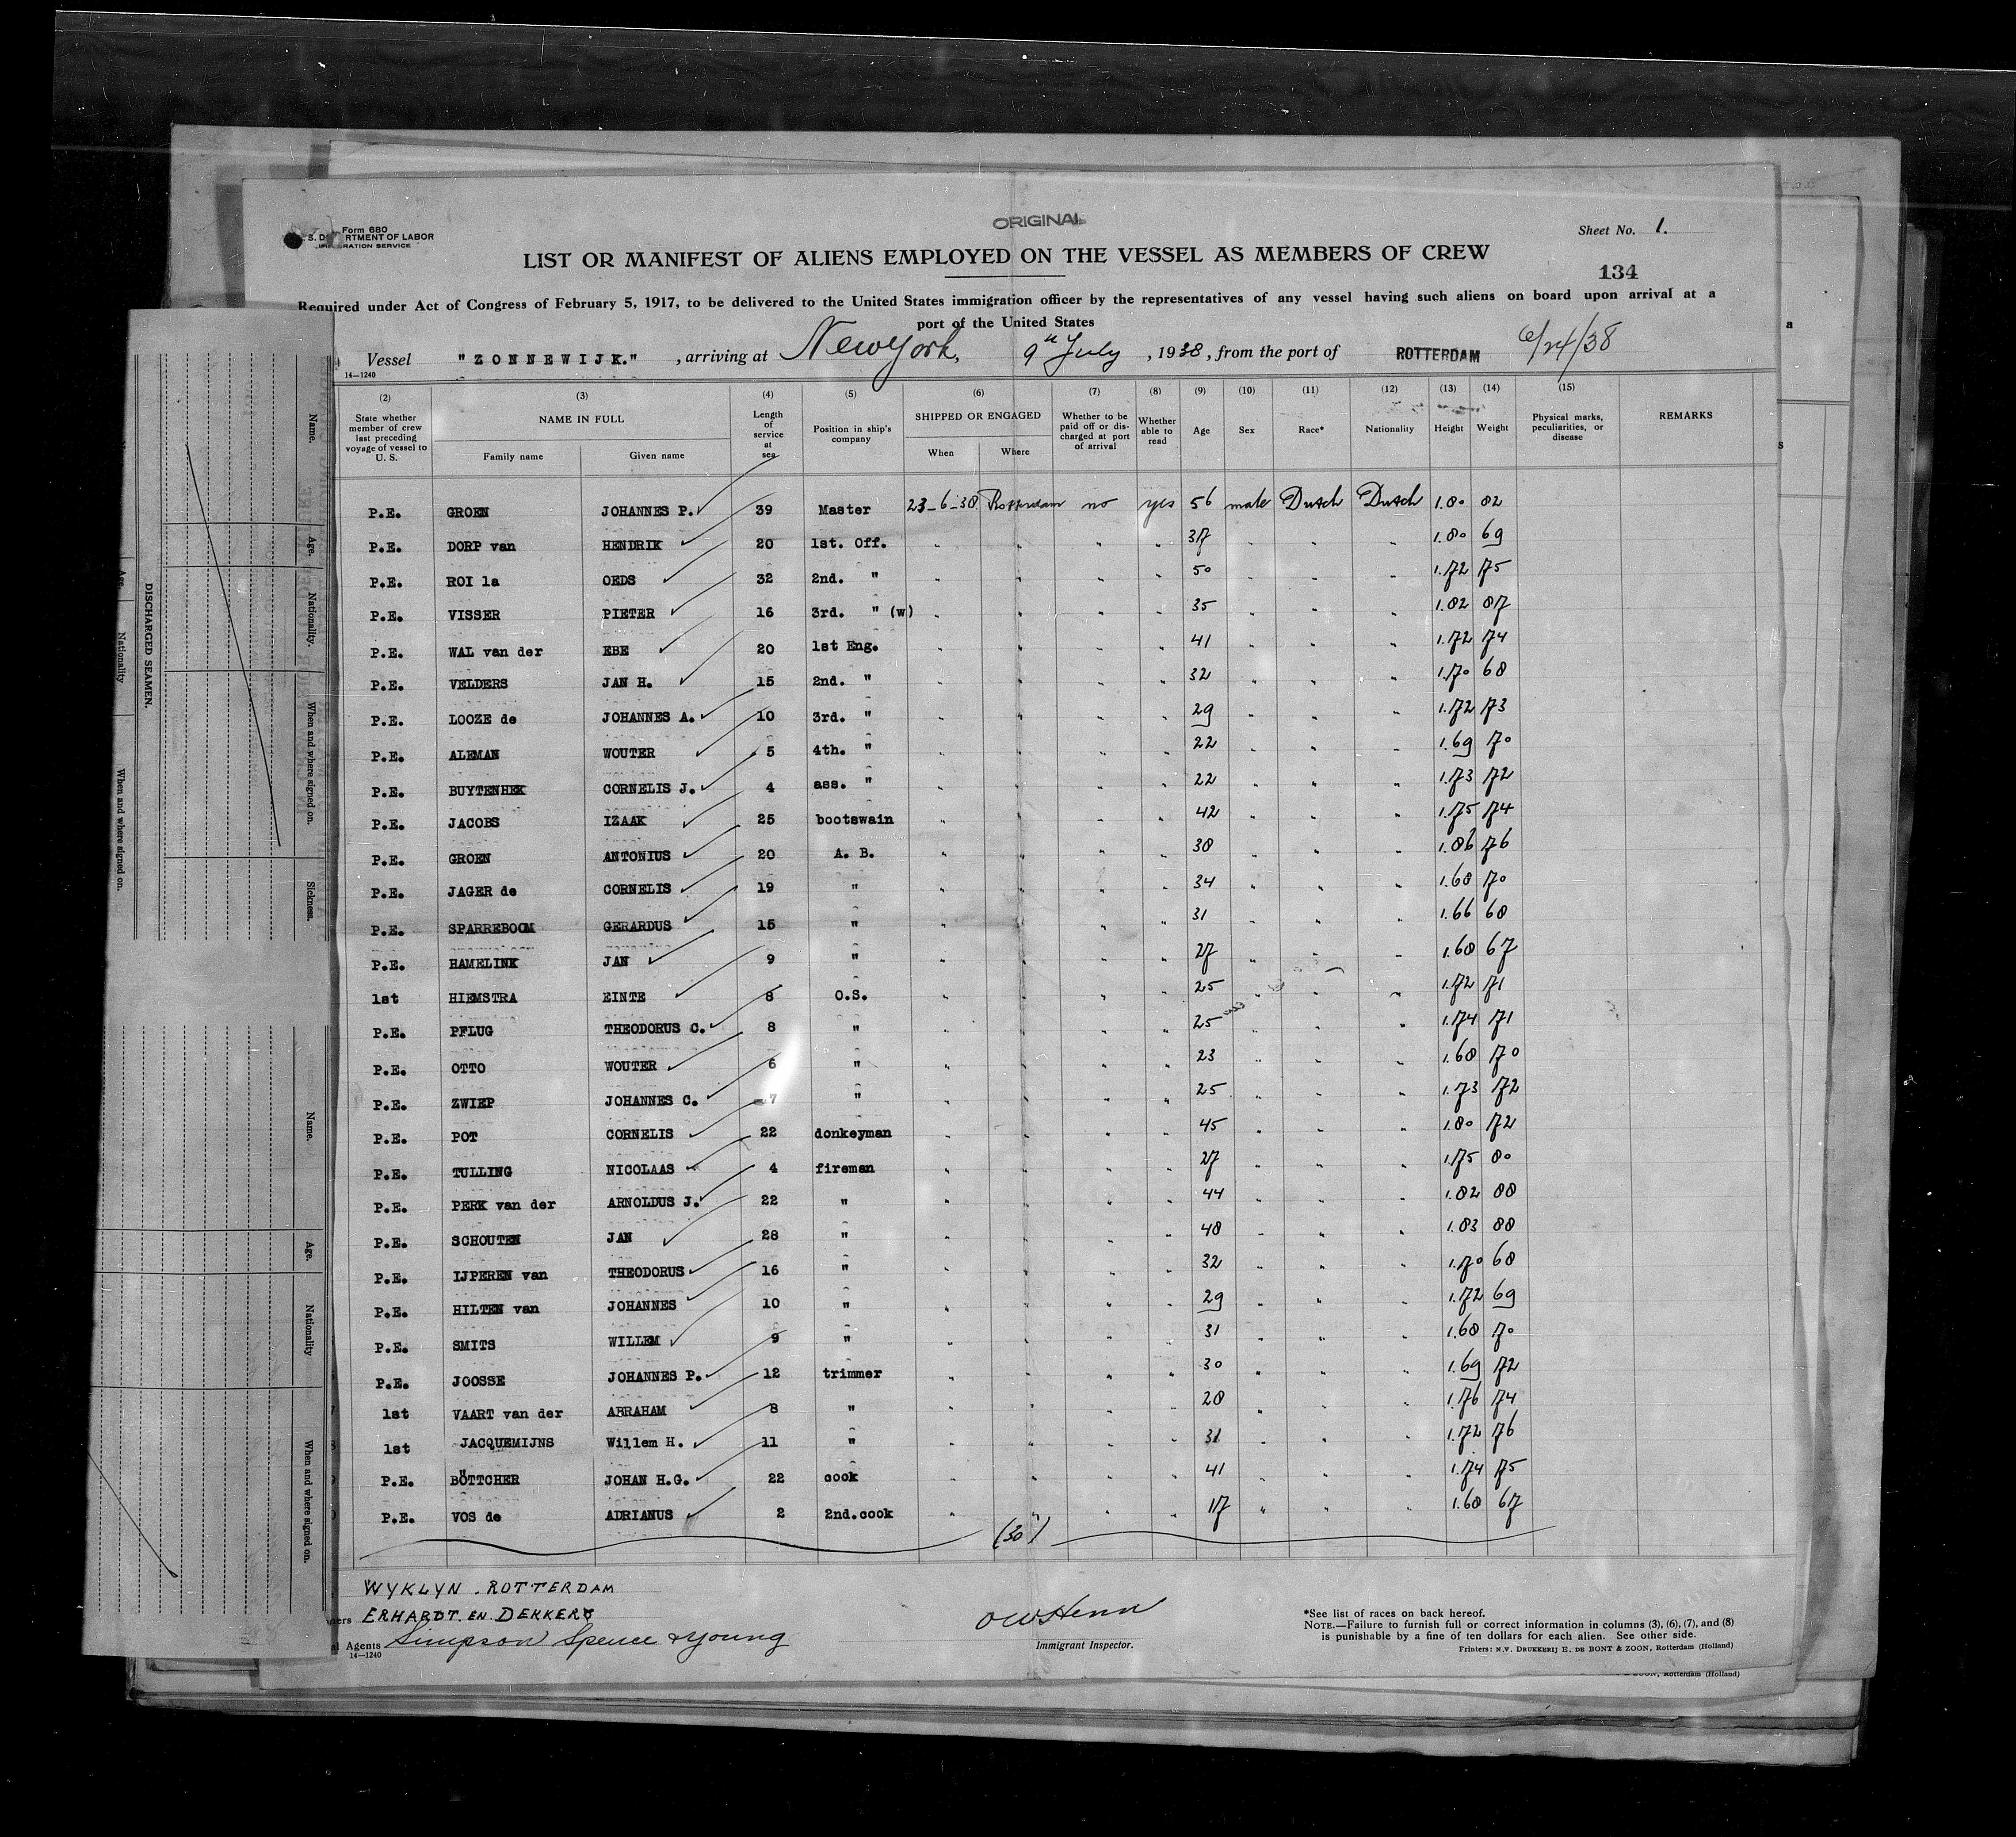 ORIGINAL
Form 680
RTMENT OF LABOR
Sheet No. 1.
LIST OR MANIFEST OF ALIENS EMPLOYED ON THE VESSEL AS MEMBERS OF CREW
134
Required under Act of Congress of February 5, 1917, to be delivered to the United States immigration officer by the representatives of any vessel having such aliens on board upon arrival at a
port of the United States
Vessel "ZONNEWIJK." , arriving at New York, 9th July , 1938, from the port of ROTTERDAM 6/24/38
14—1240
(2) (3) (4) (5) (6) (7) (8) (9) (10) (11) (12) (13) (14) (15)
State whether member of crew last preceding voyage of vessel to U. S. NAME IN FULL Family name Given name Length of service at sea Position in ship's company SHIPPED OR ENGAGED When Where Whether to be paid off or discharged at port of arrival Whether able to read Age Sex Race* Nationality Height Weight Physical marks, peculiarities, or disease REMARKS
P.E. GROEN JOHANNES P. 39 Master 23-6-38 Rotterdam no yes 56 male Dutch Dutch 1.80 82
P.E. DORP van HENDRIK 20 1st. Off. " " " " 37 " " " 1.80 69
P.E. ROI la OEDS 32 2nd. " " " " " 50 " " " 1.72 75
P.E. VISSER PIETER 16 3rd. " (w) " " " " 35 " " " 1.82 87
P.E. WAL van der EBE 20 1st Eng. " " " " 41 " " " 1.72 74
P.E. VELDERS JAN H. 15 2nd. " " " " " 32 " " " 1.70 68
P.E. LOOZE de JOHANNES A. 10 3rd. " " " " " 29 " " " 1.72 73
P.E. ALEMAN WOUTER 5 4th. " " " " " 22 " " " 1.69 70
P.E. BUYTENHEK CORNELIS J. 4 ass. " " " " " 22 " " " 1.73 72
P.E. JACOBS IZAAK 25 bootswain " " " " 42 " " " 1.75 74
P.E. GROEN ANTONIUS 20 A. B. " " " " 38 " " " 1.86 76
P.E. JAGER de CORNELIS 19 " " " " " 34 " " " 1.68 70
P.E. SPARREBOOM GERARDUS 15 " " " " " 31 " " " 1.66 68
P.E. HAMELINK JAN 9 " " " " " 27 " " " 1.68 67
1st HIEMSTRA EINTE 8 O.S. " " " " 25 " " " 1.72 71
P.E. PFLUG THEODORUS C. 8 " " " " " 25 " " " 1.74 71
P.E. OTTO WOUTER 6 " " " " " 23 " " " 1.68 70
P.E. ZWIEP JOHANNES C. 7 " " " " " 25 " " " 1.73 72
P.E. POT CORNELIS 22 donkeyman " " " " 45 " " " 1.80 72
P.E. TULLING NICOLAAS 4 fireman " " " " 27 " " " 1.75 80
P.E. PERK van der ARNOLDUS J. 22 " " " " " 44 " " " 1.82 88
P.E. SCHOUTEN JAN 28 " " " " " 48 " " " 1.83 88
P.E. IJPEREN van THEODORUS 16 " " " " " 32 " " " 1.70 68
P.E. HILTEN van JOHANNES 10 " " " " " 29 " " " 1.72 69
P.E. SMITS WILLEM 9 " " " " " 31 " " " 1.68 70
P.E. JOOSSE JOHANNES P. 12 trimmer " " " " 30 " " " 1.69 72
1st VAART van der ABRAHAM 8 " " " " " 28 " " " 1.76 74
1st JACQUEMIJNS Willem H. 11 " " " " " 31 " " " 1.72 76
P.E. BÖTTCHER JOHAN H.G. 22 cook " " " " 41 " " " 1.74 75
P.E. VOS de ADRIANUS 2 2nd.cook " " " " 17 " " " 1.68 67
(30)
WYKLYN . ROTTERDAM
ERHARDT. EN. DEKKERS
Agents Simpson Spence & Young
14—1240
Immigrant Inspector.
*See list of races on back hereof.
NOTE.—Failure to furnish full or correct information in columns (3), (6), (7), and (8)
is punishable by a fine of ten dollars for each alien. See other side.
Printers: N.V. DRUKKERIJ H. DE BONT & ZOON, Rotterdam (Holland)
ZOON, Rotterdam (Holland)
DISCHARGED SEAMEN.
Name. Age. Nationality. When and where signed on. Sickness.
Age. Nationality When and where signed on.
Name. Age. Nationality When and where signed on.